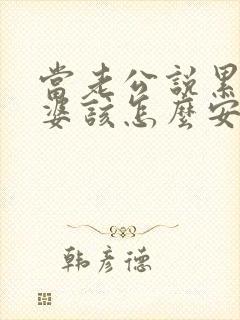 當老公說累
婆該怎麼安
韩彦德